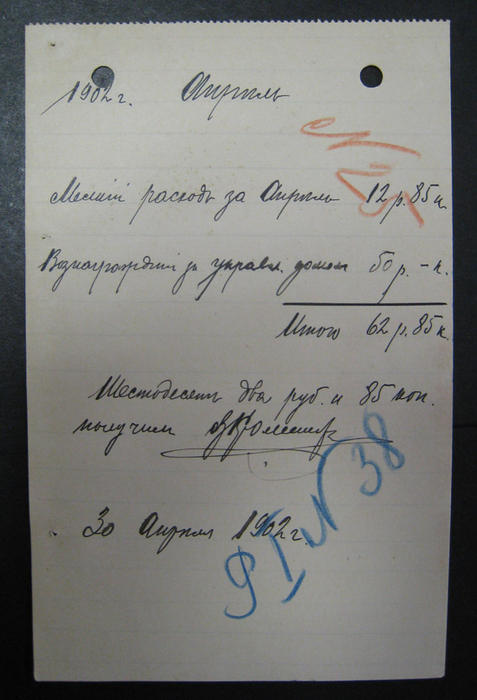 1902 г. Апрель
N 25
Мелкий расход за Апрель 12 р. 85 к.
Вознаграждение за управл. домом 50 р. - к.
Итого 62 р. 85 к.
Шестьдесят два руб. и 85 коп.
получил
30 Апреля 1902 г.
N 38